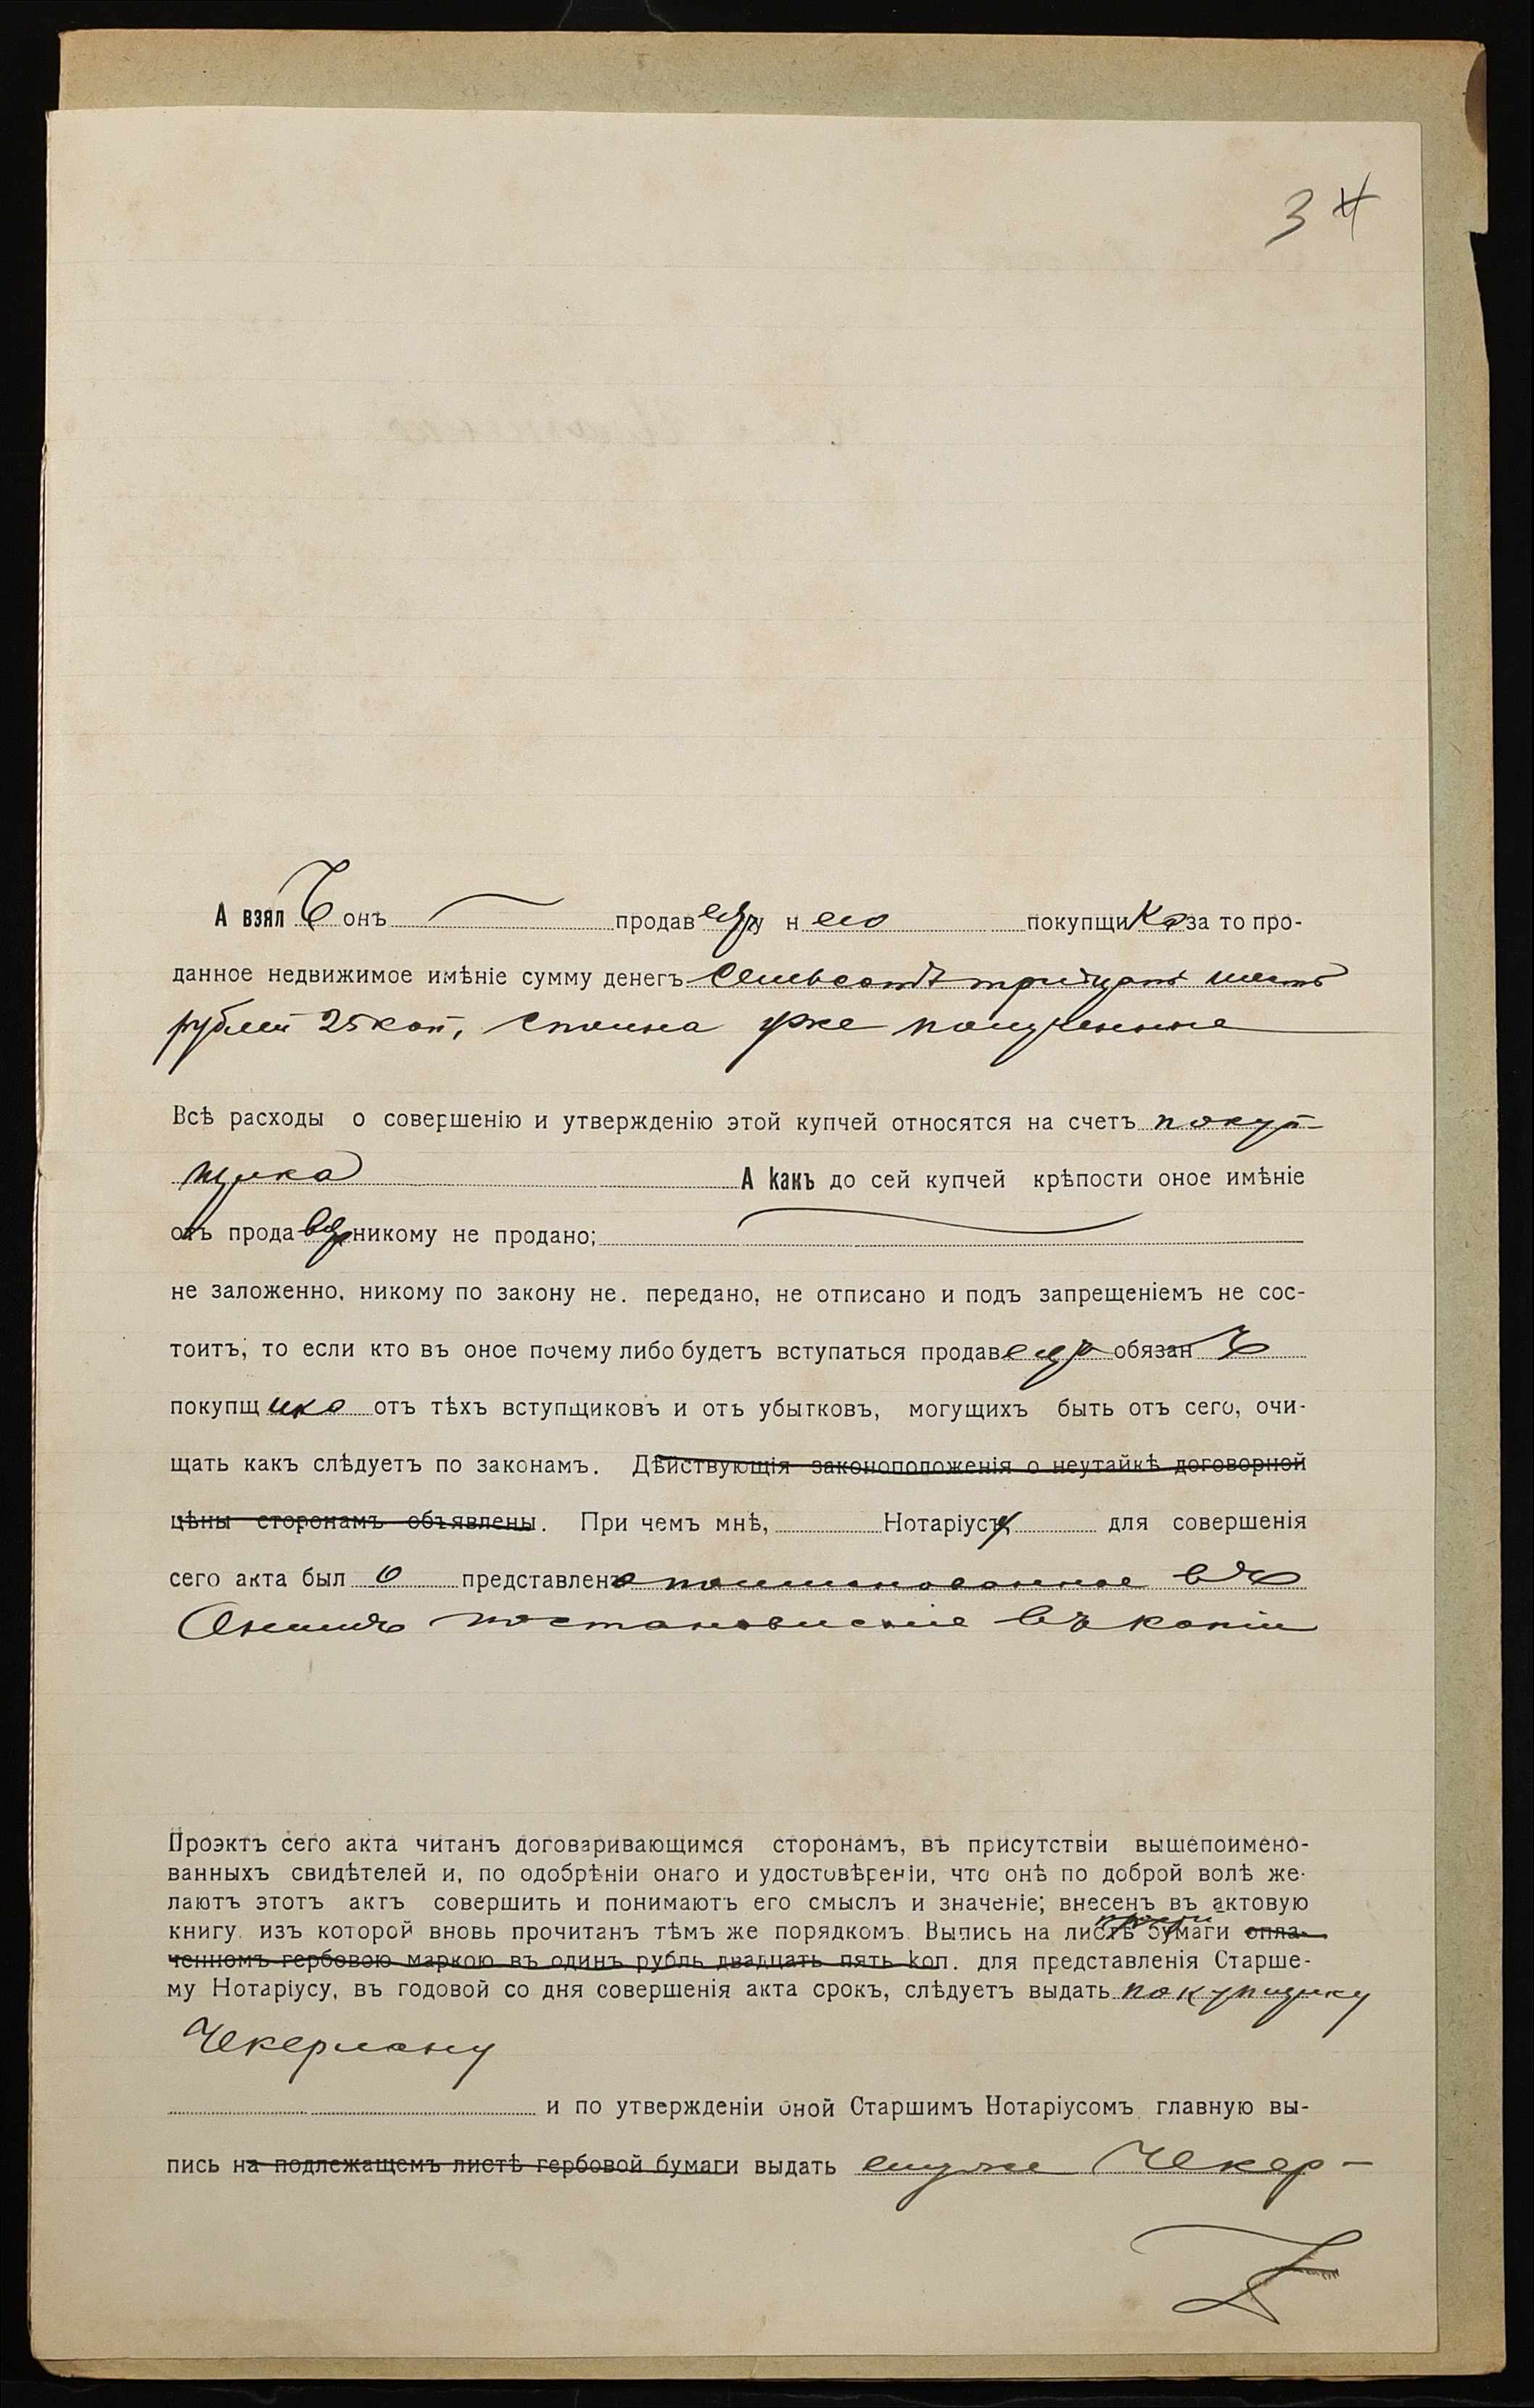 34
А взялъ онъ продавецъ у него покупщика за то про-
данное недвижимое имѣніе сумму денегъ Семьсотъ тридцать шесть
рублей 25 коп, сполна уже полученные
Всѣ расходы о совершенію и утвержденію этой купчей относятся на счетъ покуп-
щика А какъ до сей купчей крѣпости оное имѣніе
отъ продавца никому не продано;
не заложенно, никому по закону не. передано, не отписано и подъ запрещеніемъ не сос-
тоитъ; то если кто въ оное почему либо будетъ вступаться продавецъ обязанъ
покупщика отъ тѣхъ вступщиковъ и отъ убытковъ, могущихъ быть отъ сего, очи-
щать какъ слѣдуетъ по законамъ. Дѣйствующія законоположенія о неутайкѣ договорной
цѣны сторонамъ объявлены. При чемъ мнѣ, Нотаріусу, для совершенія
сего акта было представлено поименованное въ
постановленіе въ копіи
Проэктъ сего акта читанъ договаривающимся сторонамъ, въ присутствіи вышепоимено-
ванныхъ свидѣтелей и, по одобрѣніи онаго и удостовѣреніи, что онѣ по доброй волѣ же-
лаютъ этотъ актъ совершить и понимаютъ его смыслъ и значеніе; внесенъ въ актовую
книгу. изъ которой вновь прочитанъ тѣмъ же порядкомъ. Выпись на листѣ бумаги опла-
ченномъ гербовою маркою въ одинъ рубль двадцать пять коп. для представленія Старше-
му Нотаріусу, въ годовой со дня совершенія акта срокъ, слѣдуетъ выдать покупщику
Чекерману
и по утвержденіи оной Старшимъ Нотаріусомъ главную вы-
пись на подлежащемъ листѣ гербовой бумаги выдать ему же Чекер-